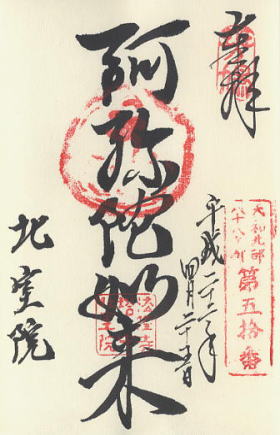 奉拝
大和北部
八十八ヶ所
第五拾番
平成二十二年
四月二十五日
阿弥陀如来
北室院